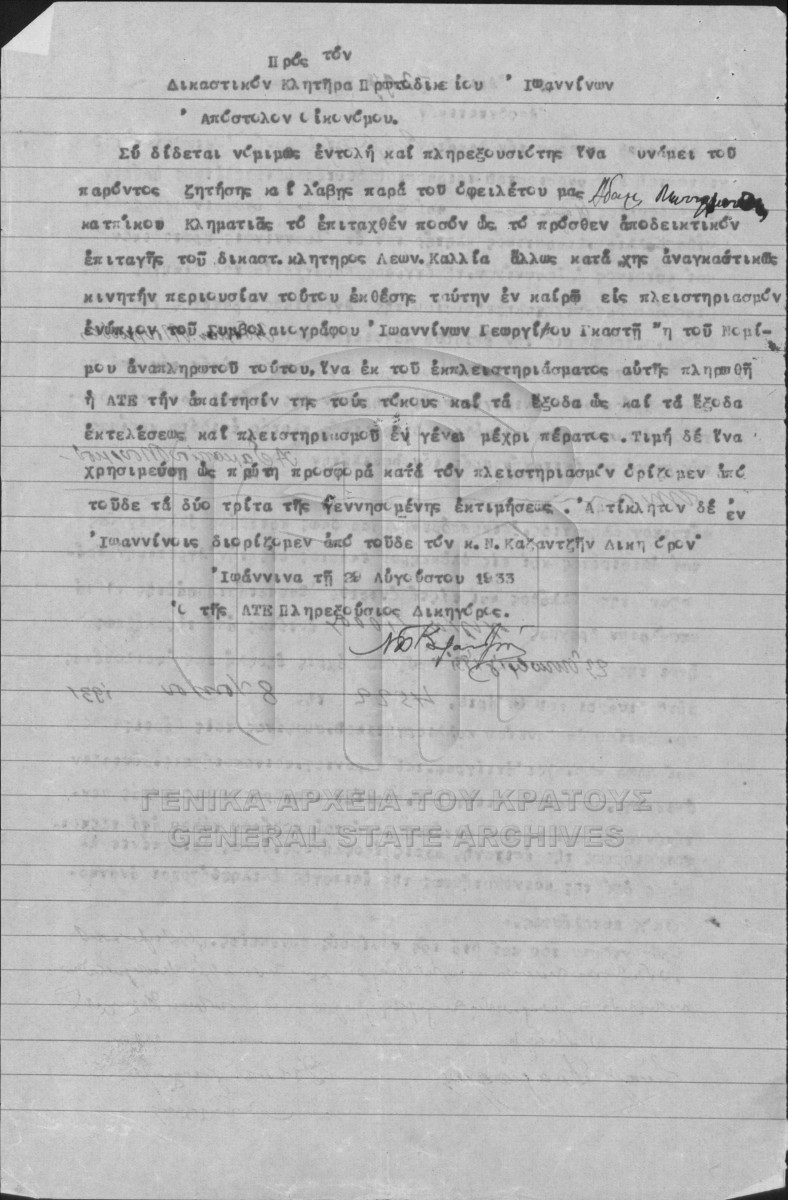 Πρός τόν
Δικαστικόν Κλητῆρα Πρωτοδικείου Ἰωαννίνων
Ἀπόστολον Οἰκονόμου.
Σύ δίδεται νόμιμως ἐντολή καί πληρεξουσιότης ἵνα δυνάμει τοῦ
παρόντος ζητήσης καί λάβης παρά τοῦ ὀφειλέτου μας
κατοίκου Κληματιᾶς τό ἐπιταχθέν ποσόν ὡς τό πρόσθεν ἀποδεικτικόν
ἐπιταγῆς τοῦ δικαστ.κλητηρος Λεων.Καλλία ἄλλως κατά χης ἀναγκαστικῶς
κινητήν περιουσίαν τούτου ἐκθέσης ταύτην ἐν καίρῳ είς πλειστηριασμόν
ἐνώπιον τοῦ Συμβολαιογράφου Ἰωαννίνων Γεωργίου Γκαστῆ ἤ τοῦ Νομί-
μου ἀναπληρωτοῦ τούτου, ἵνα ἐκ τοῦ ἐκπλειστηριάσματος αὐτῆς πληρωθῆ
ἡ ΑΤΕ τήν ἀπαίτησίν της τούς τόκους καί τά ἔξοδα ὡς καί τά ἔξοδα
ἐκτελέσεως καί πλειστηριασμοῦ ἐν γένει μέχρι πέρατος. Τιμή δέ ἵνα
χρησιμεύση ὡς πρώτη προσφορά κατά τόν πλειστηριασμόν ὁρίζομεν ἀπό
τοῦδε τά δύο τρίτα τῆς γεννησομένης ἐκτιμήσεως. Ἀντίκλητον δέ ἐν
Ἰωαννίνοις διορίζομεν ἀπό τοῦδε τόν κ. Ν. Καζαντζῆν Δικηγόρον
Ἰωάννινα τῇ 29 Αὐγούστου 1933
Ὁ τῆς ΑΤΕ Πληρεξούσιος Δικηγόρος.
4522
8
1931
ΓΕΝΙΚΑ ΑΡΧΕΙΑ ΤΟΥ ΚΡΑΤΟΥΣ
GENERAL STATE ARCHIVES